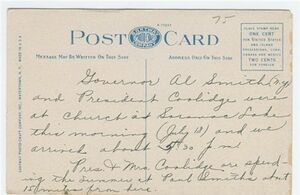 75
POST CARD
MESSAGE MAY BE WRITTEN ON THIS SIDE
ADDRESS ONLY ON THIS SIDE
PLACE STAMP HERE
ONE CENT
FOR UNITED STATES
AND ISLAND
POSSESSIONS, CUBA,
CANADA AND MEXICO
TWO CENTS
FOR FOREIGN
Governor Al Smith (NY)
and President Coolidge were
at Church at Saranac Lake
this morning (July 18) and we
arrived about 9:30 P.M.
Pres. & Mrs. Coolidge are spend-
ing the summer at Paul Smiths about
15 miles from here.